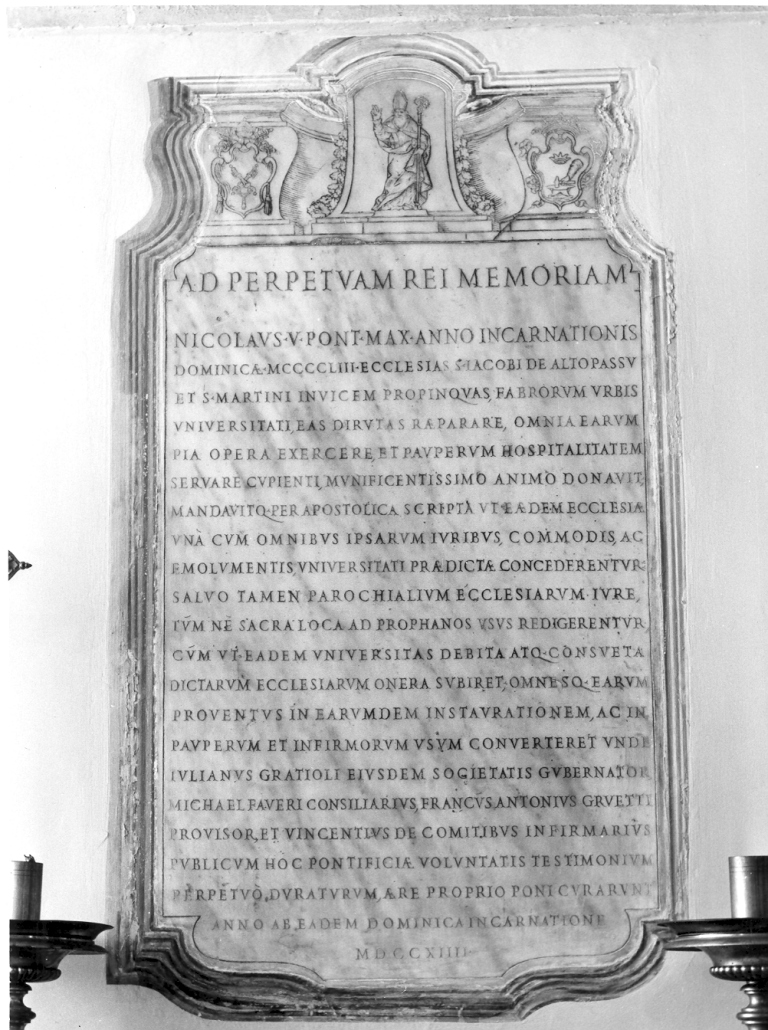 AD PERPETVAM REI MEMORIAM
NICOLAVS·V·PONT·MAX·ANNO INCARNATIONIS
DOMINICÆ·MCCCCLIII·ECCLESIAS S·IACOBI DE ALTOPASSV
ET S·MARTINI INVICEM PROPINQVAS, FABRORVM VRBIS
VNIVERSITATI, EAS DIRVTAS RÆPARARE, OMNIA EARVM
PIA OPERA EXERCERE, ET PAVPERVM HOSPITALITATEM
SERVARE CVPIENTI, MVNIFICENTISSIMO ANIMO DONAVIT
MANDAVITQ·PER APOSTOLICA SCRIPTA VT EÆDEM ECCLESIÆ
VNÀ CVM OMNIBVS IPSARVM IVRIBVS, COMMODIS, AC
EMOLVMENTIS, VNIVERSITATI PRÆDICTÆ CONCEDERENTVR·
SALVO TAMEN PAROCHIALIVM ECCLESIARVM·IVRE,
TVM NE SACRA LOCA AD PROPHANOS VSVS REDIGERENTVR,
CVM VT EADEM VNIVERSITAS DEBITA ATQ·CONSVETA
DICTARVM ECCLESIARVM ONERA SVBIRET, OMNESQ·EARVM
PROVENTVS IN EARVMDEM INSTAVRATIONEM, AC IN
PAVPERVM ET INFIRMORVM VSVM CONVERTERET VNDE
IVLIANVS GRATIOLI EIVSDEM SOCIETATIS GVBERNATOR
MICHAEL FAVERI CONSILIARIVS, FRANCVS ANTONIVS GRVETTI
PROVISOR, ET VINCENTIVS DE COMITIBVS INFIRMARIVS
PVBLICVM HOC PONTIFICIÆ VOLVNTATIS TESTIMONIVM
PERPETVÒ, DVRATVRVM, ÆRE PROPRIO PONI CVRARVNT
ANNO AB EADEM DOMINICA INCARNATIONE
MDCCXIIII